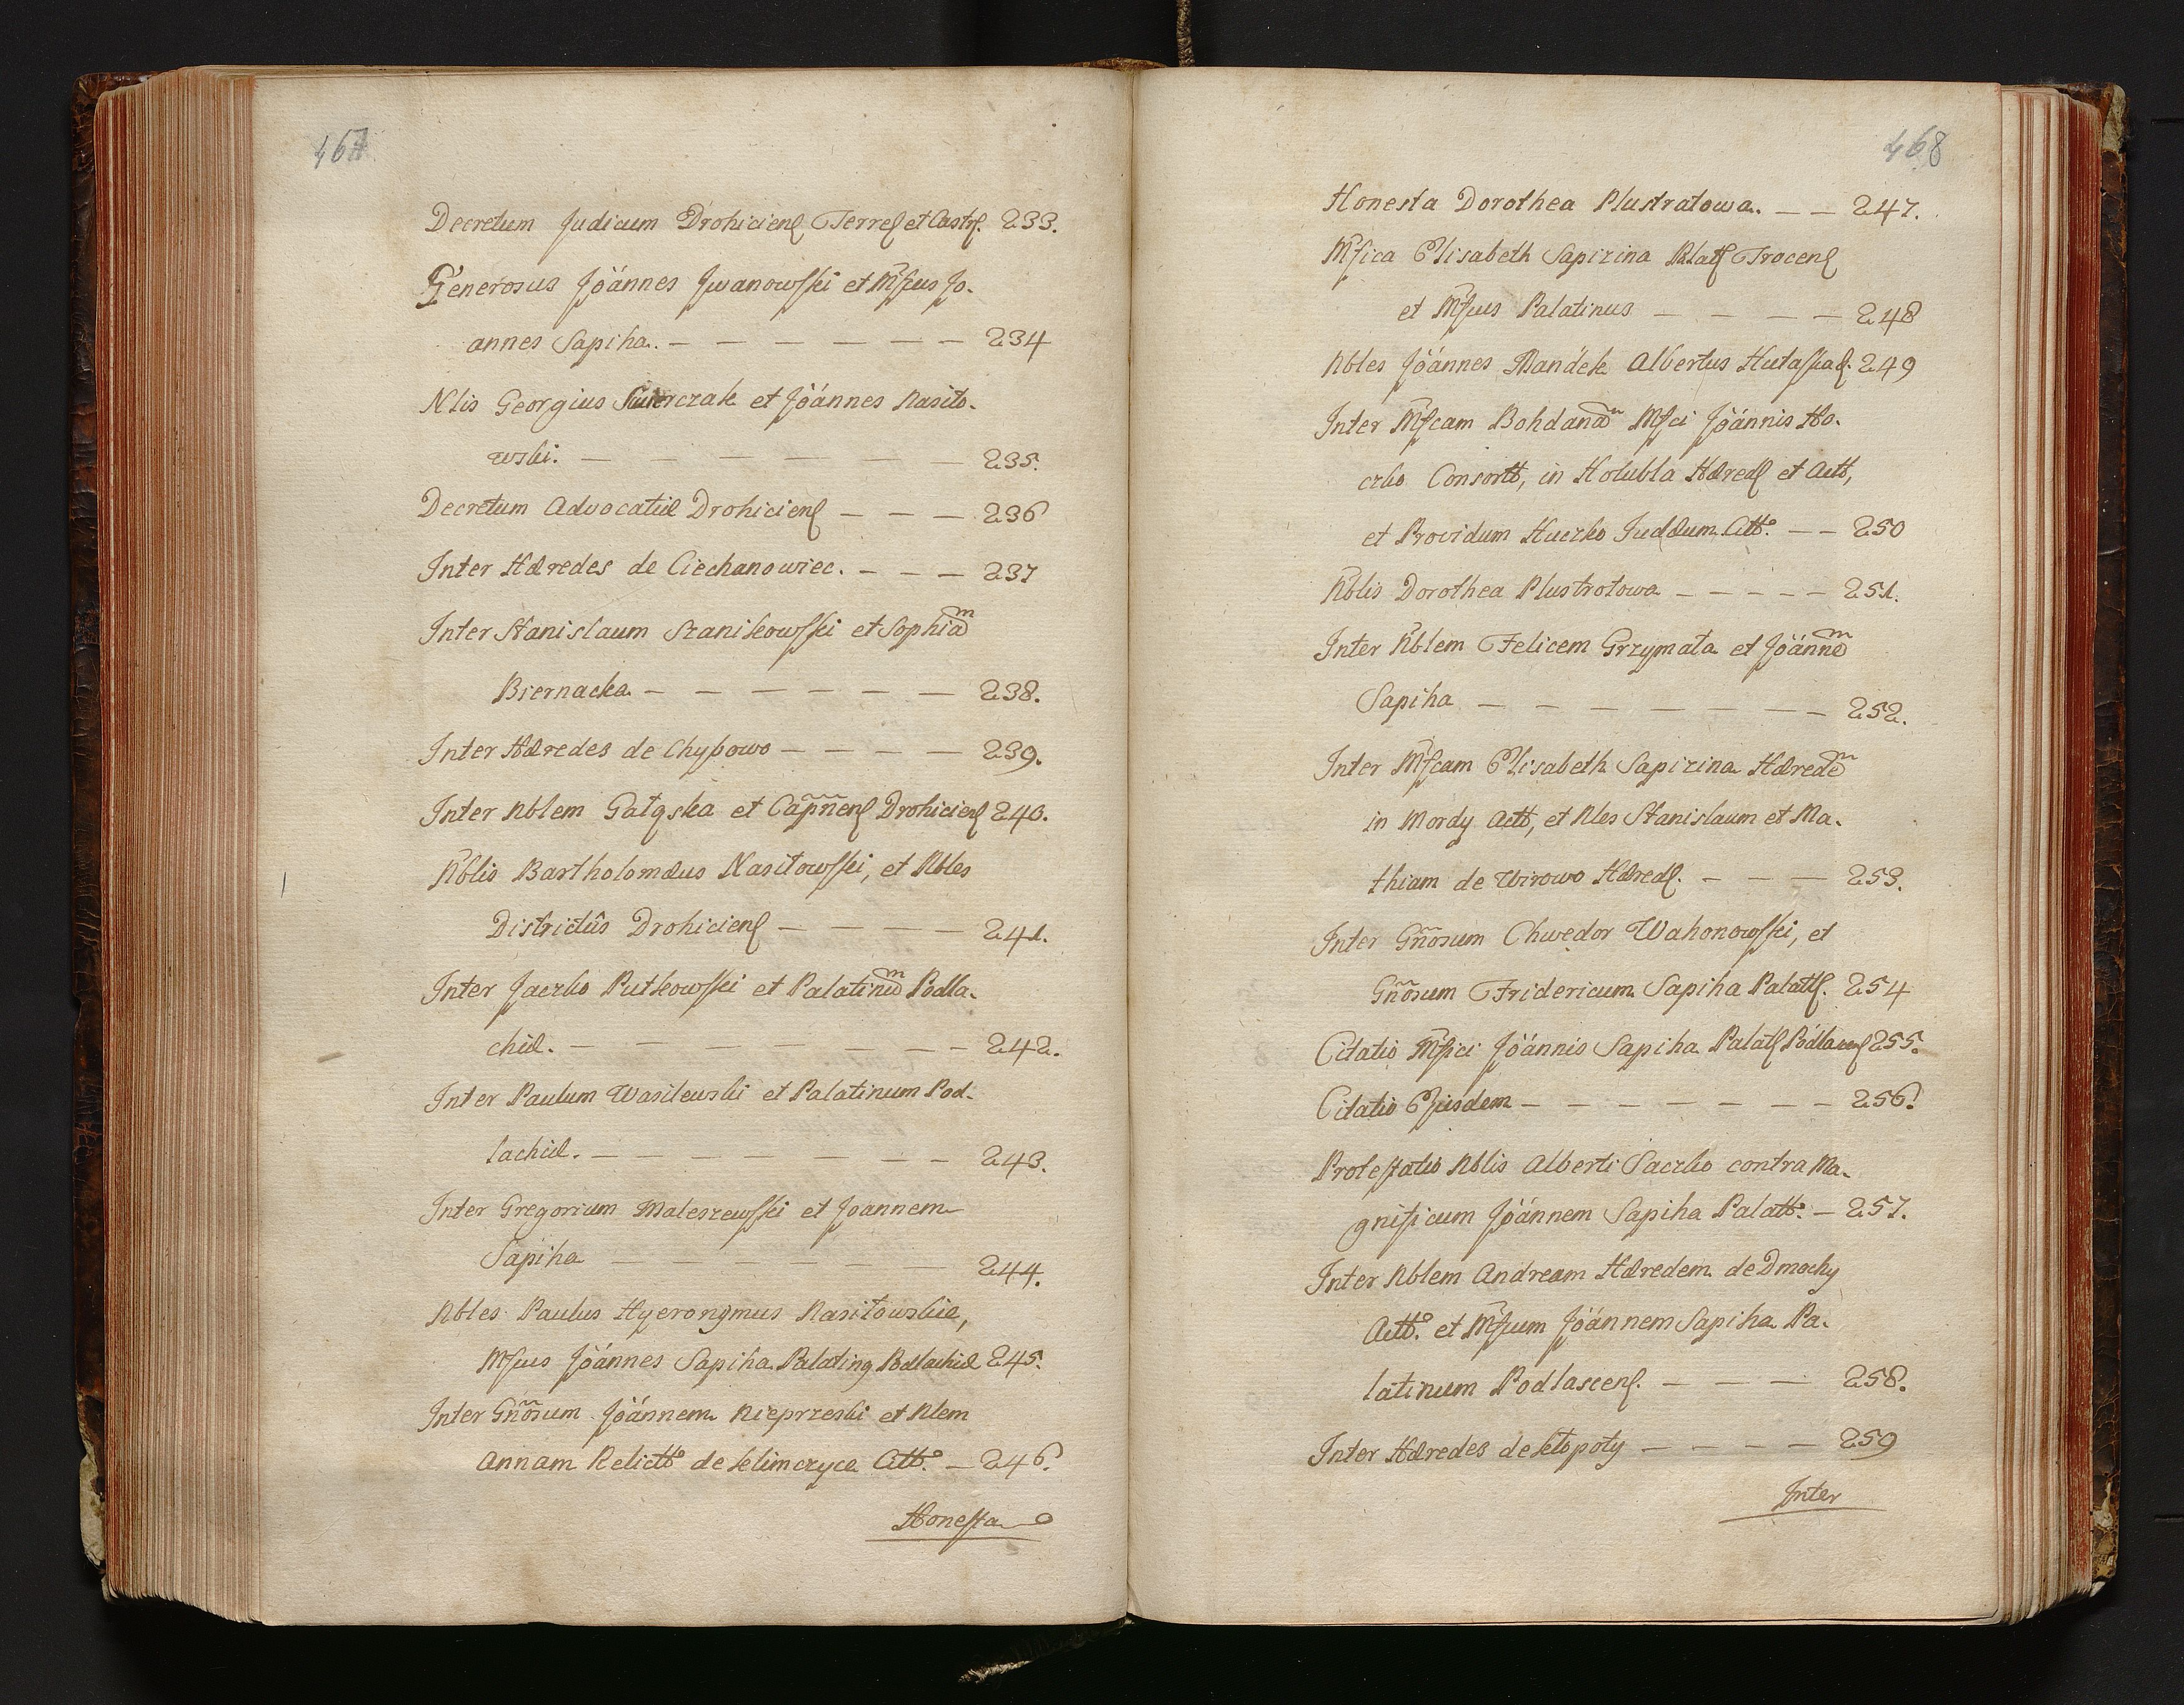 467
Decretum Judicum Drohiciens Terres et Castr. 233.
Generosus Joánnes Jwanowski et Mfcus Jo-
annes Sapiha. — — — — — — 234
Nlis Georgius Swierczak et Joánnes Nasito-
wski. — — — — — — — 235.
Decretum Advocatiæ Drohiciens — — — 236
Inter Hæredes de Ciechanowiec. — — — 237
Inter Stanislaum Szanikowski et Sophiam
Biernacka — — — — — — 238.
Inter Hæredes de Chybowo — — — — 239.
Inter Nblem Gałąska et Capñens Drohiciens 240.
Nblis Bartholomæus Nasiłowski, et Nbles
Districtûs Drohiciens — — — — 241.
Inter Jaczko Putkowski et Palatinum Podla-
chiæ. — — — — — — — — 242.
Inter Paulum Wasilewski et Palatinum Pod-
lachiæ. — — — — — — — 243.
Inter Gregorium Maleszewski et Joannem
Sapiha — — — — — — — 244.
Nbles Paulus Hyeronymus Nasiłowskie,
Mfcus Joánnes Sapiha Palating Podlachiæ 245.
Inter Gñosum Joánnem Nieprzeski et Nlem
Annam Relictã de Klimczyce Attõ. — 246.
Honesta
468
Honesta Dorothea Plustratowa. — — 247.
Mfica Elisabeth Sapizina Palats Trocens
et Mfcus Palatinus — — — — 248
Nbles Joánnes Mandek Albertus Hutaskas. 249
Inter Mfcam Bohdanam Mfci Joánnis Ho-
czko Consortẽ, in Holubla Hæreds et Actt,
et Providum Huczko Judæum Attõ. — — 250
Nblis Dorothea Plustrotowa — — — — — 251.
Inter Nblem Felicem Grzymała et Joánnem
Sapiha — — — — — — — — 252.
Inter Mfcam Elisabeth Sapizina Hæredem
in Mordy Actt, et Nles Stanislaum et Ma-
thiam de Wirowo Hæreds. — — — 253.
Inter Gñosum Chwędor Wahonowski, et
Gñosum Fridericum Sapiha Palatts. 254
Citatio Mfici Joánnis Sapiha Palats Podlacens 255.
Citatio Ejusdem — — — — — — — 256.
Protestatio Nblis Alberti Saczko contra Ma-
gnificum Joánnem Sapiha Palattõ. — 257.
Inter Nblem Andream Hæredem de Dmochy
Acttõ. et Mfcum Joánnem Sapiha Pa-
latinum Podlascens. — — — 258.
Inter Hæredes de Kłopoty — — — — 259
Inter